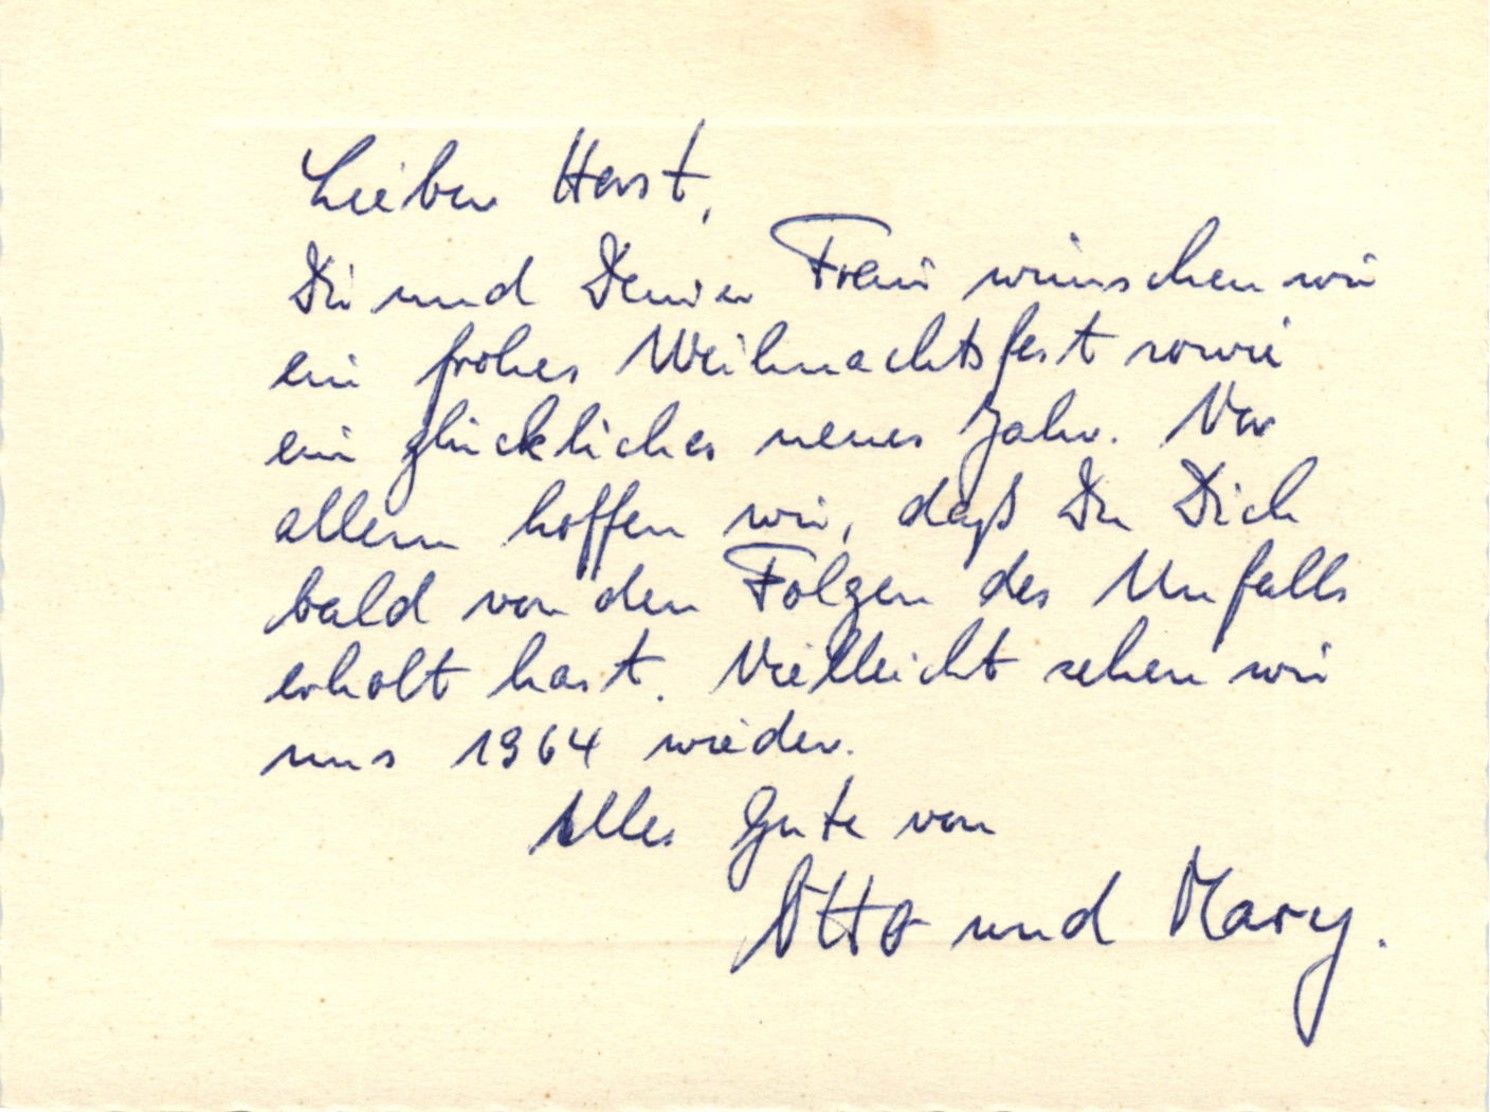 Lieber Horst,
Dir und Deiner Frau wünschen wir
ein frohes Weihnachtsfest sowie
ein glückliches neues Jahr. Vor
allem hoffen wir, daß Du Dich
bald von den Folgen des Unfalls
erholt hast. Vielleicht sehen wir
uns 1964 wieder.
Alles Gute von
Otto und Mary.